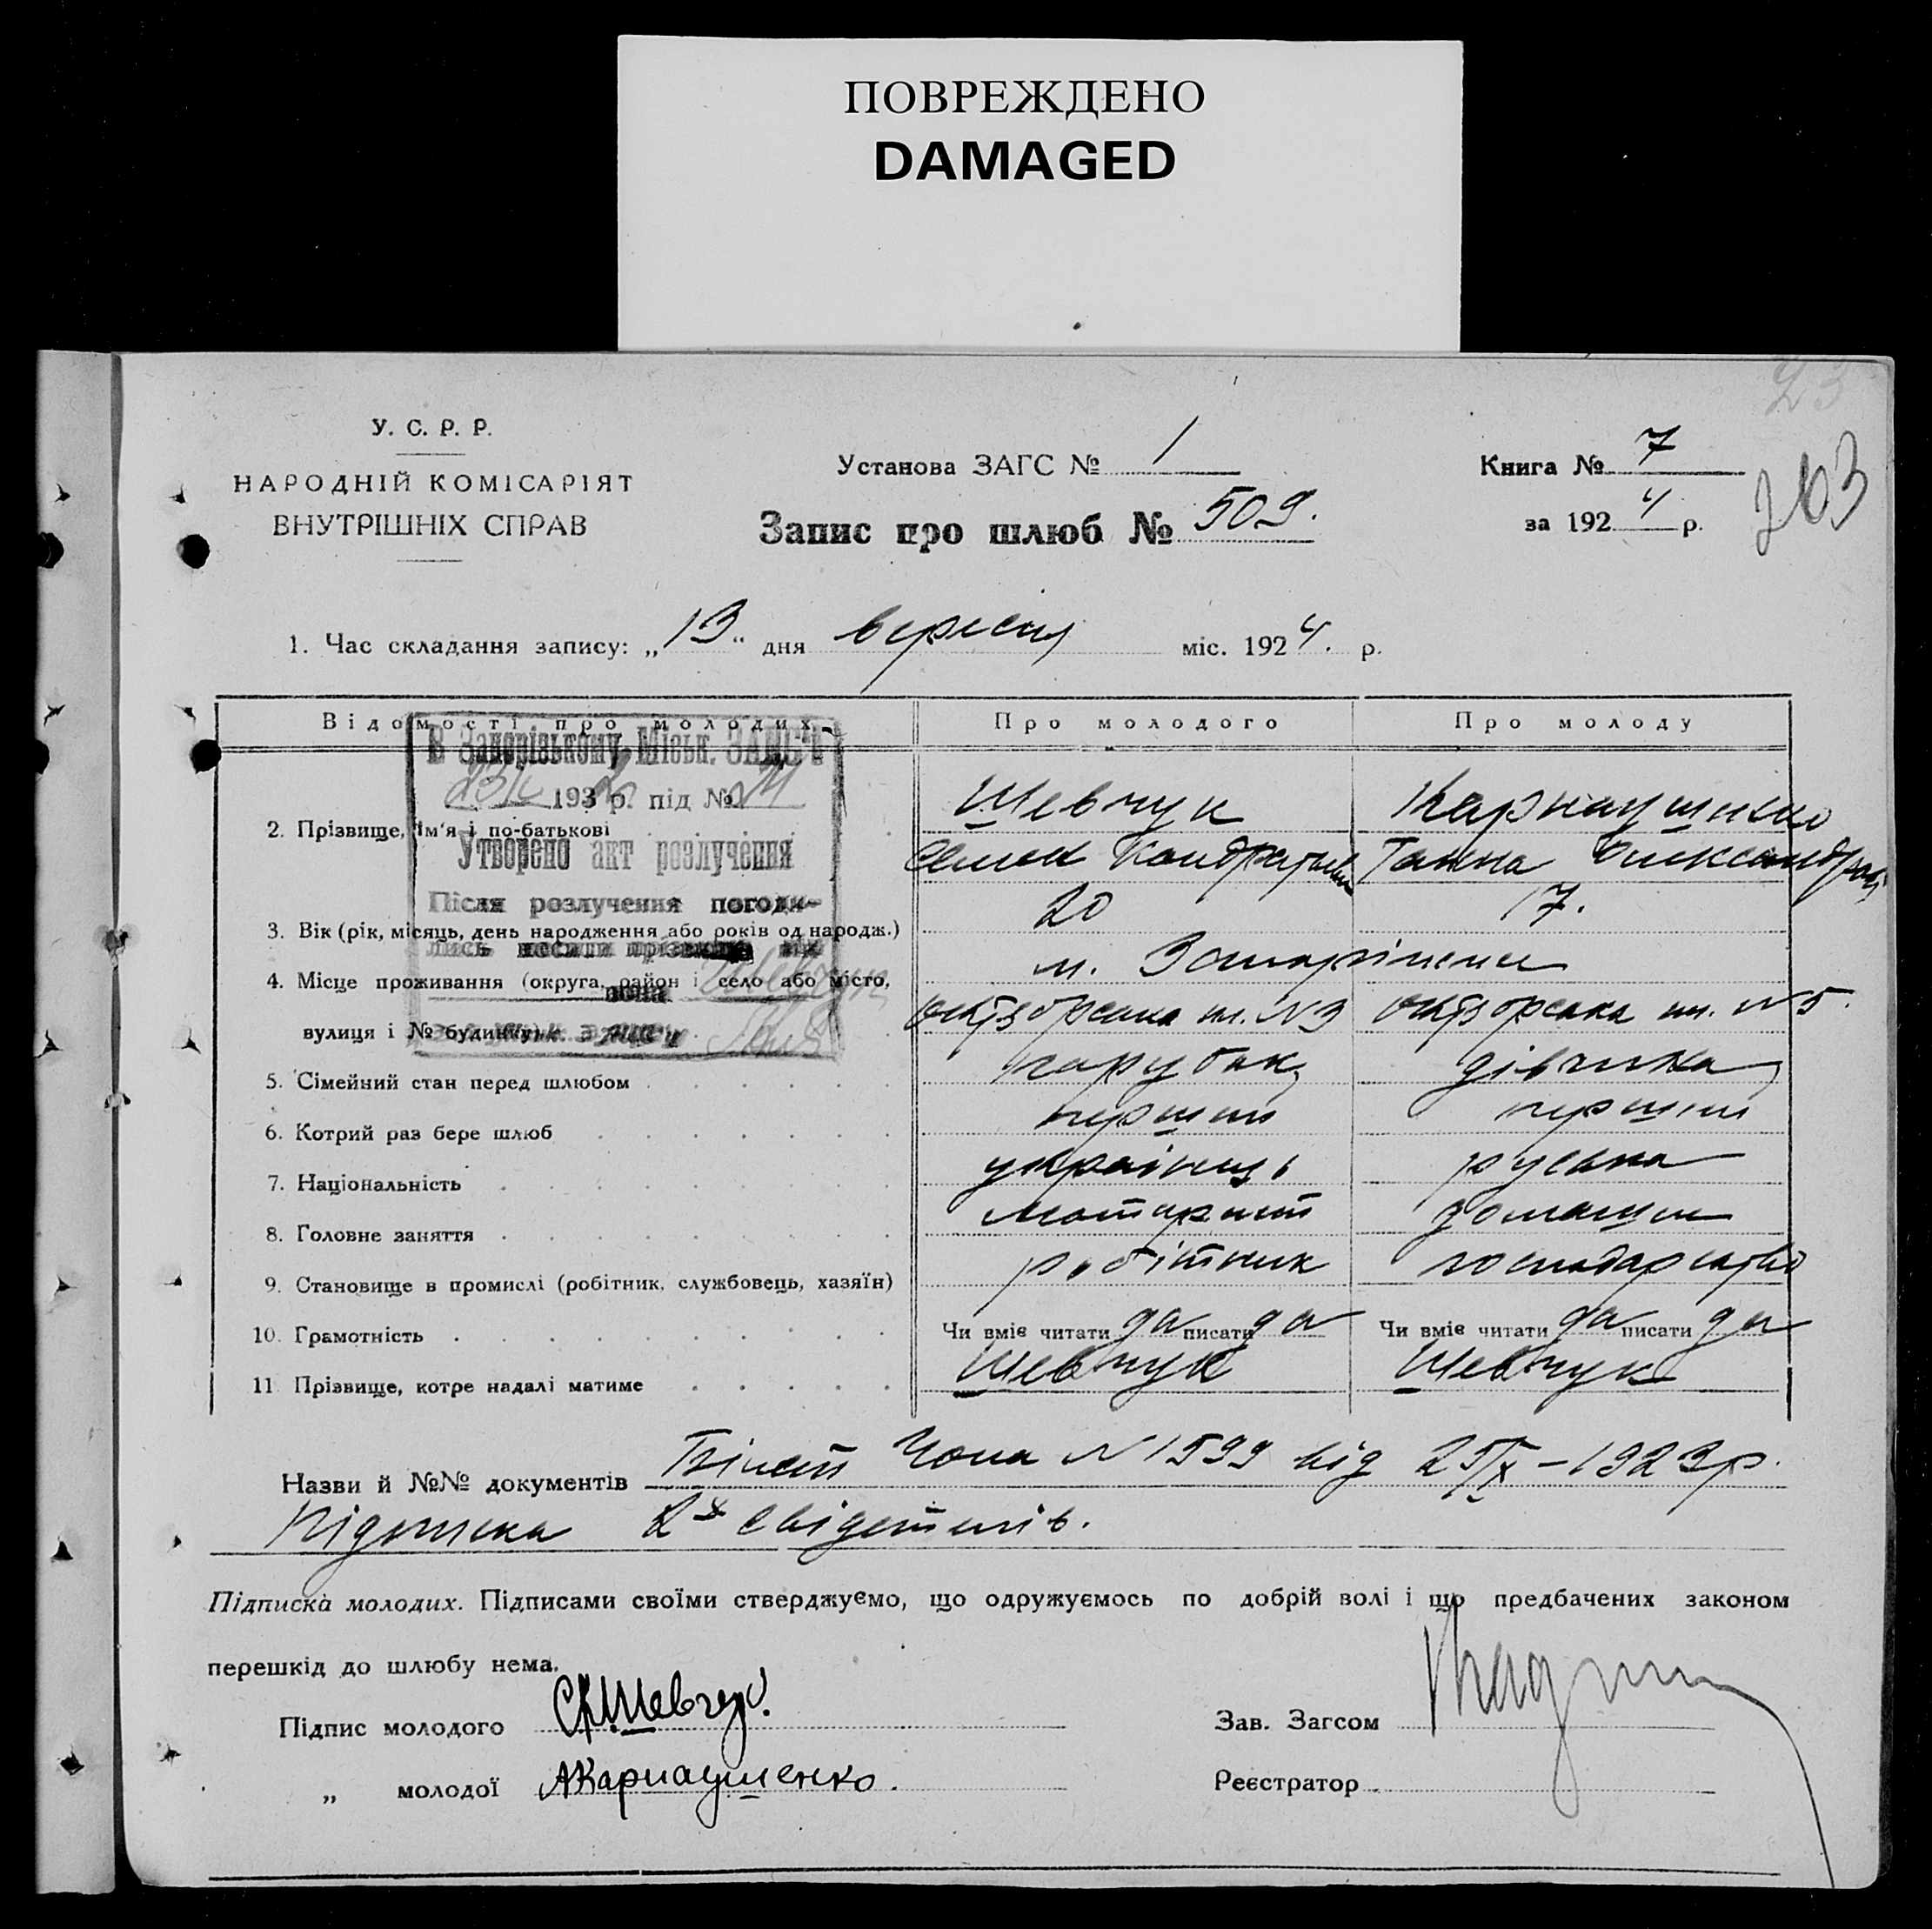 ПОВРЕЖДЕНО
DAMAGED
23
У. С. Р. Р.
НАРОДНІЙ КОМІСАРІЯТ
ВНУТРІШНІХ СПРАВ
Установа ЗАГС № 1
Запис про шлюб № 509.
Книга № 7
за 1924 р.
203
1. Час складання запису: „13“ дня вересня міс. 1924. р.
Відомості про молодих
Про молодого
Про молоду
В Запорізькому Міськ. ЗАГС'і
193 р. під №
Утворено акт розлучення
Після розлучення погоди-
лись носити прізвища він
вона
2. Прізвище, ім'я і по-батькові
Шевчук
Карнаушенко
Семен Кондратьев
Ганна Олександров
3. Вік (рік, місяць, день народження або років од народж.)
20
17.
4. Місце проживання (округа, район і село або місто,
м. Запоріжжя
вулиця і № будинку
№3
№5.
5. Сімейний стан перед шлюбом
парубок
дівчина
6. Котрий раз бере шлюб
перший
перший
7. Національність
українець
руська
8. Головне заняття
моторист
домашнє
9. Становище в промислі (робітник, службовець, хазяїн)
робітник
господарство
10. Грамотність
Чи вміє читати да писати да
Чи вміє читати да писати да
11 Прізвище, котре надалі матиме
Шевчук
Шевчук
Назви й №№ документів Білет Чона № 1599 від 25/IX – 1923р.
Підписка 2х свідетелів.
Підписка молодих. Підписами своїми стверджуємо, що одружуємось по добрій волі і що предбачених законом
перешкід до шлюбу нема.
Підпис молодого СКШевчук.
Зав. Загсом
„ молодої АКарнаушенко.
Реєстратор